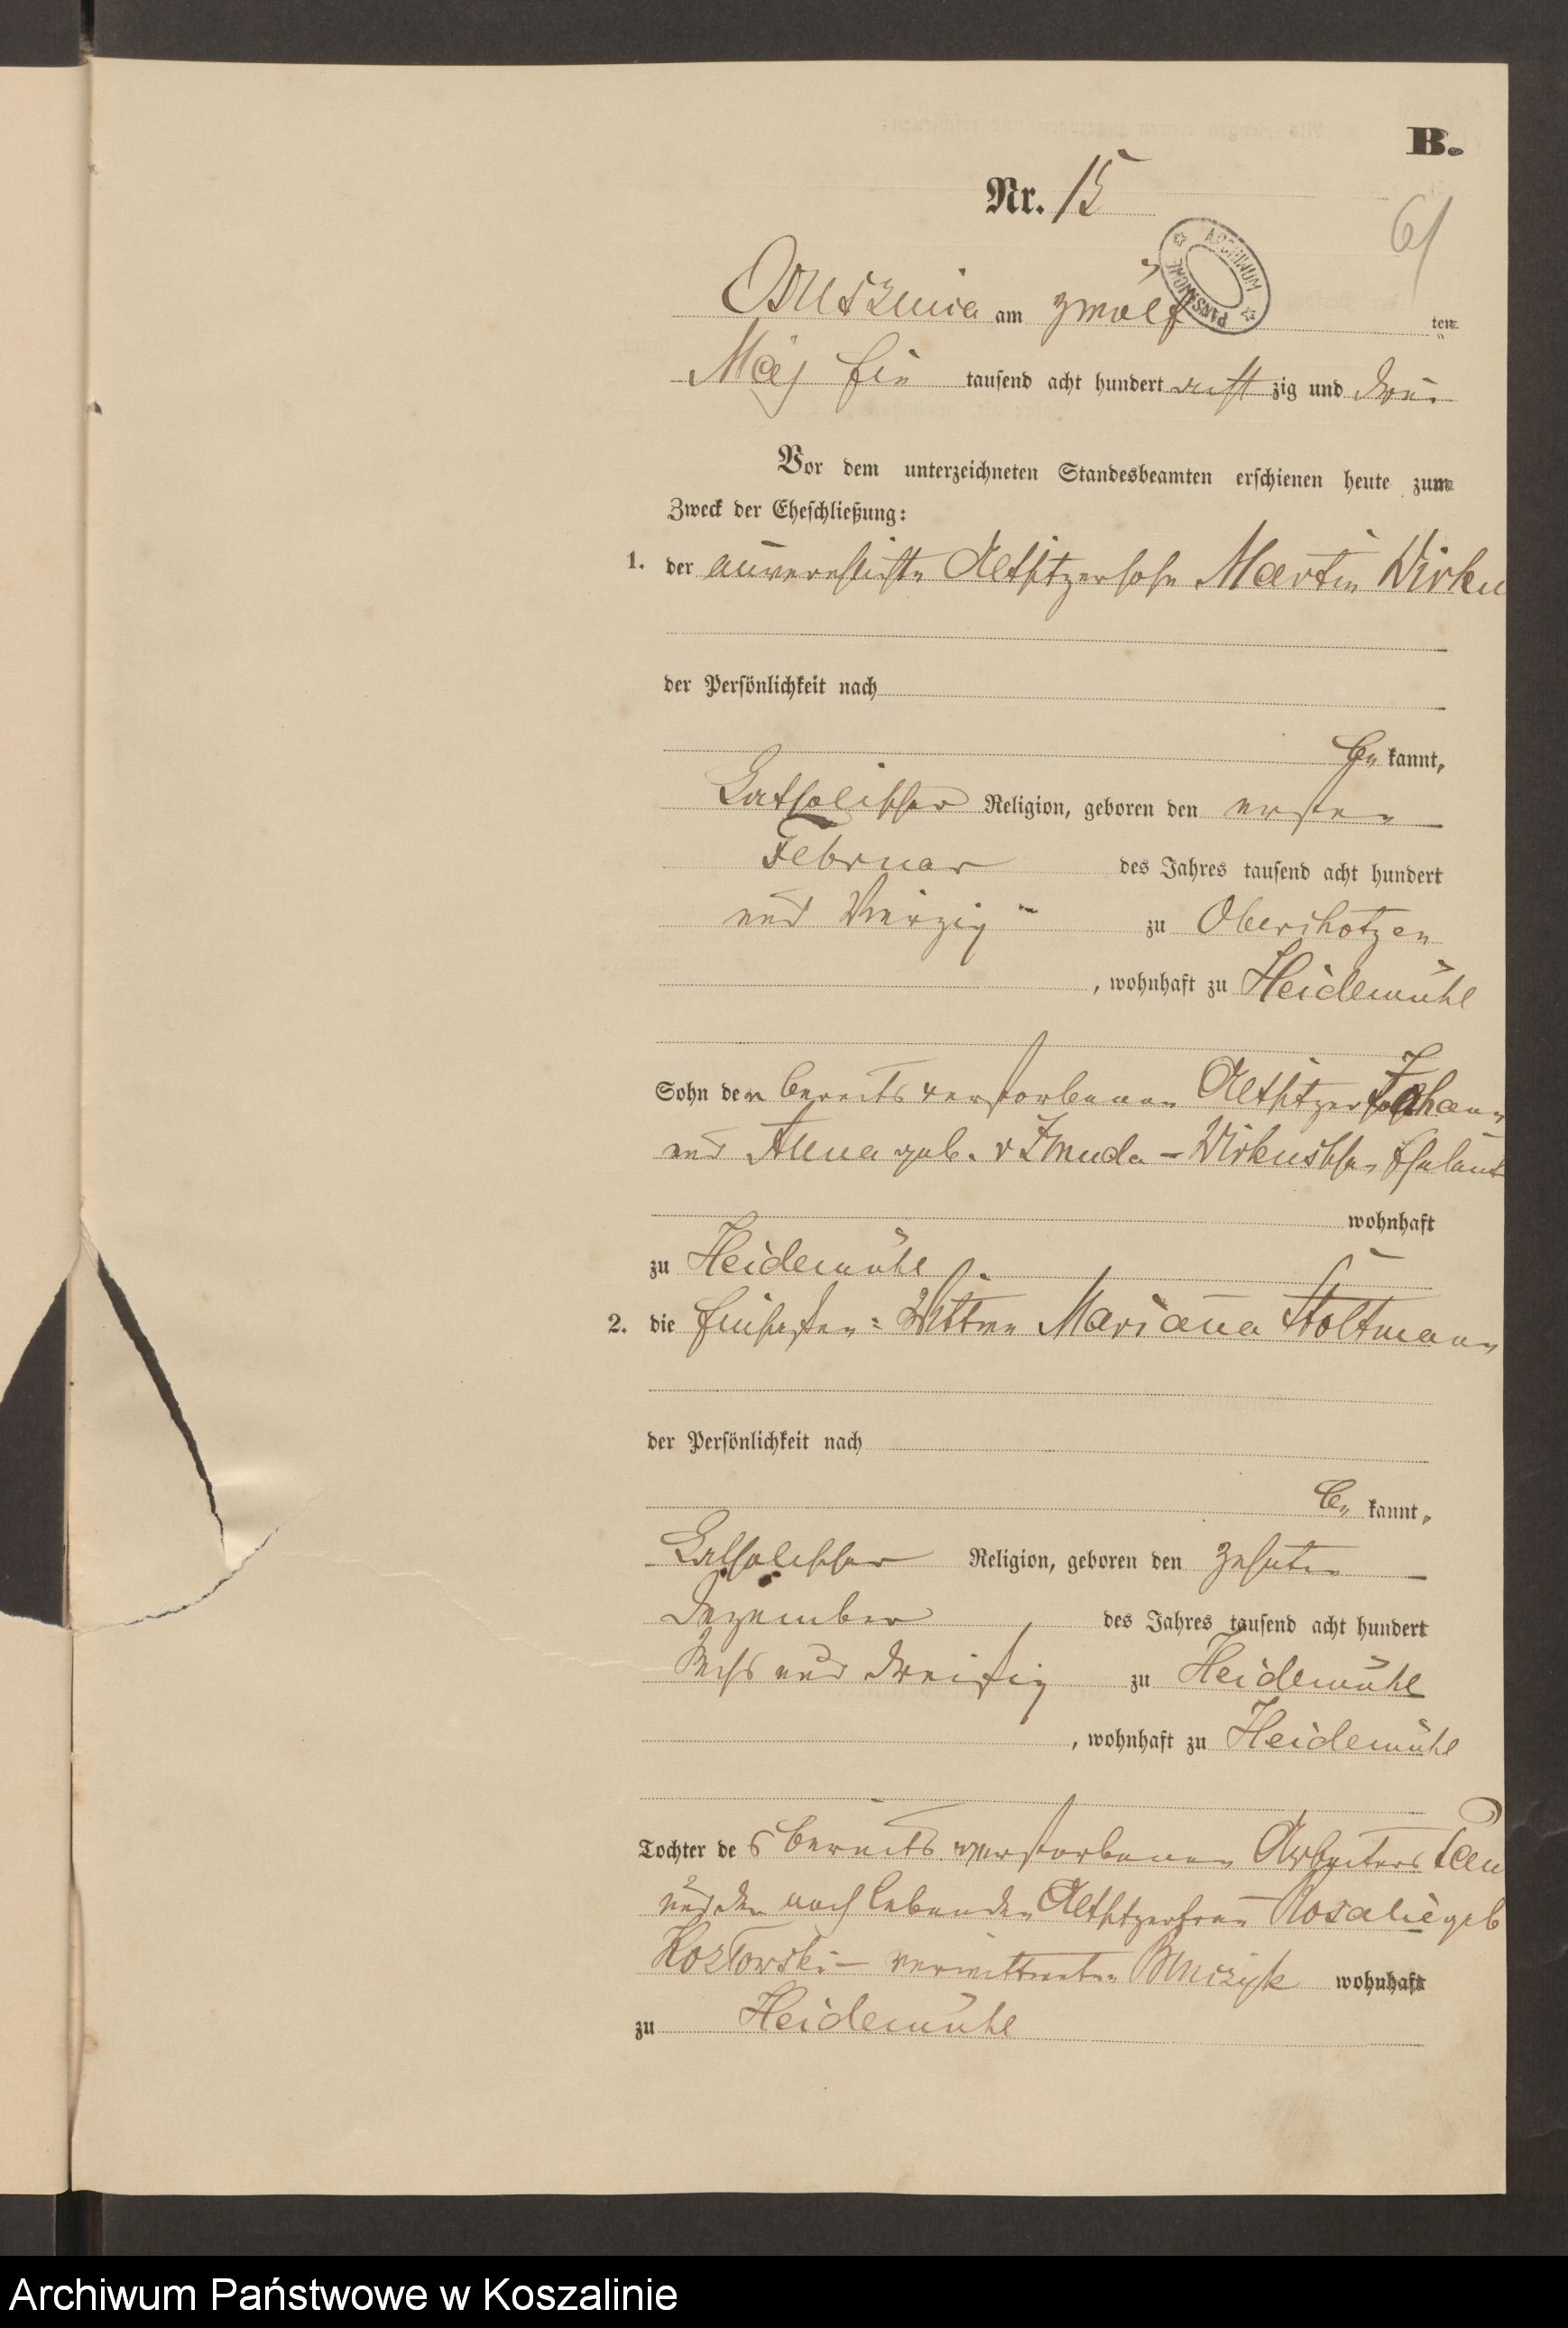 B.
Nr. 15
61
ARCHIWUM PAŃSTWOWE
Osusznica am zwölf ten
Maj Ein tausend acht hundert acht zig und drei
Vor dem unterzeichneten Standesbeamten erschienen heute zum
Zweck der Eheschließung:
1. der Altsitzersohn Martin Wirku
der Persönlichkeit nach
be kannt,
Katholischer Religion, geboren den ersten
Februar des Jahres tausend acht hundert
und Vierzig zu Oberschotzen
, wohnhaft zu Heidemühl
Sohn der bereits verstorbenen Altsitzer Johann
und Anna geb. v Zmuda - Wirkusschen Eheleut
wohnhaft
zu Heidemühl.
2. die Wittwe Marianna Stoltmann
der Persönlichkeit nach
be kannt,
Katholischer Religion, geboren den zehnten
Dezember des Jahres tausend acht hundert
Sechs und dreißig zu Heidemühl
, wohnhaft zu Heidemühl
Tochter des bereits verstorbenen Arbeiters
und der noch lebenden Altsitzerfrau Rosalie geb
Kozłowski - verwittweten wohnhaft
zu Heidemühl
Archiwum Państwowe w Koszalinie